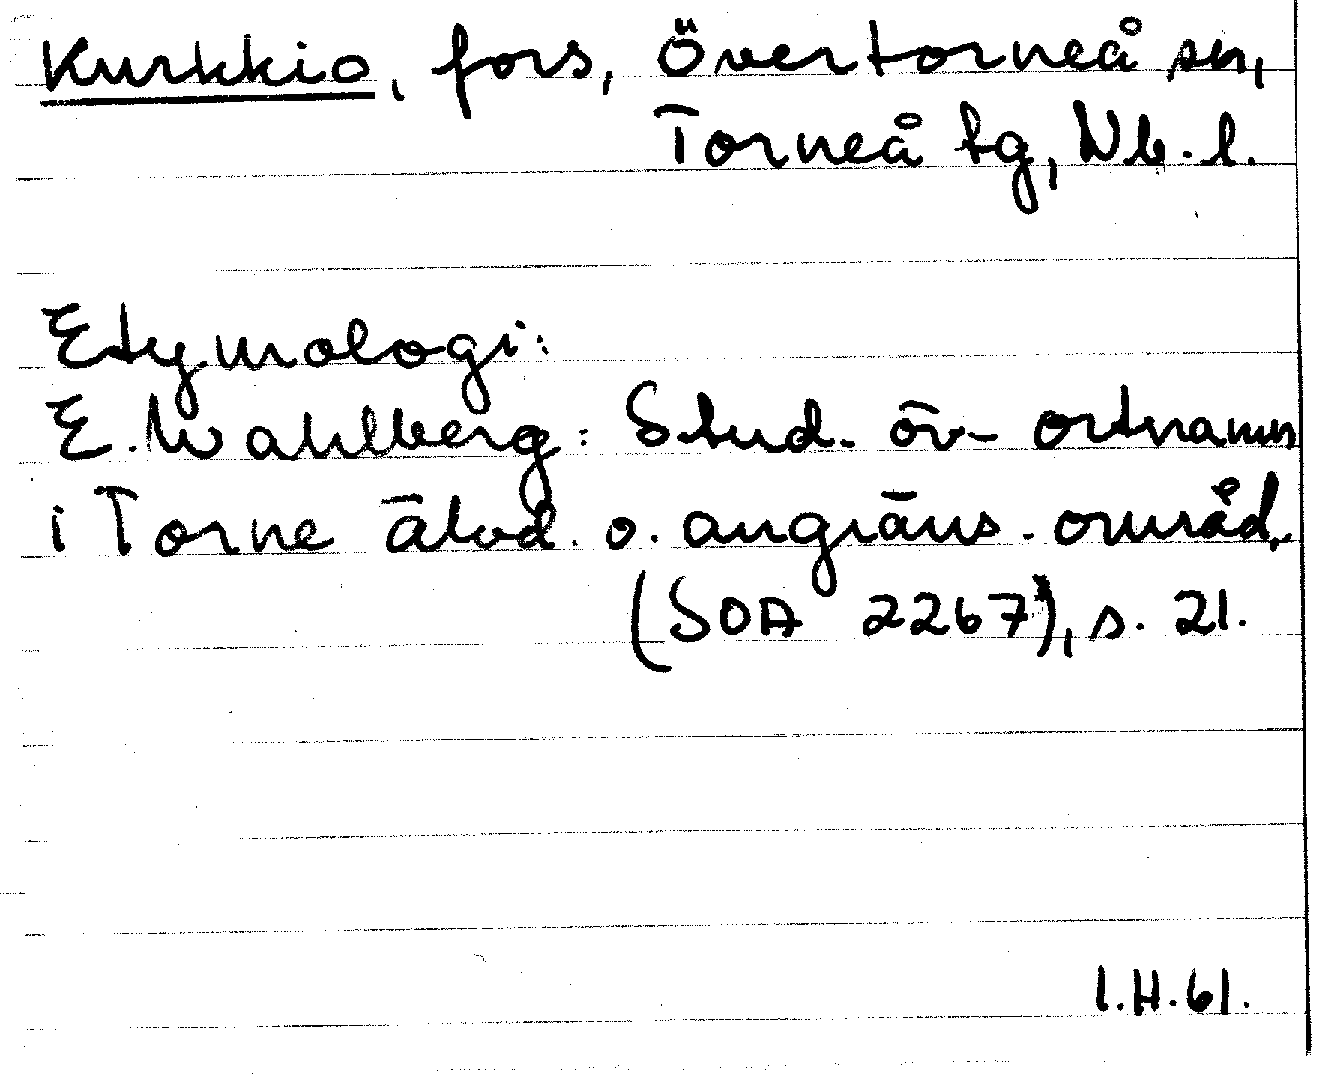 Kurkkio, fors, Övertorneå sn,
Torneå tg, Nb. l.
Etymologi:
E. Wahlberg: Stud. öv- ortnamn
i Torne älvd. o. angräns. områd.
(SOA 2267), s. 21.
I.H.61.